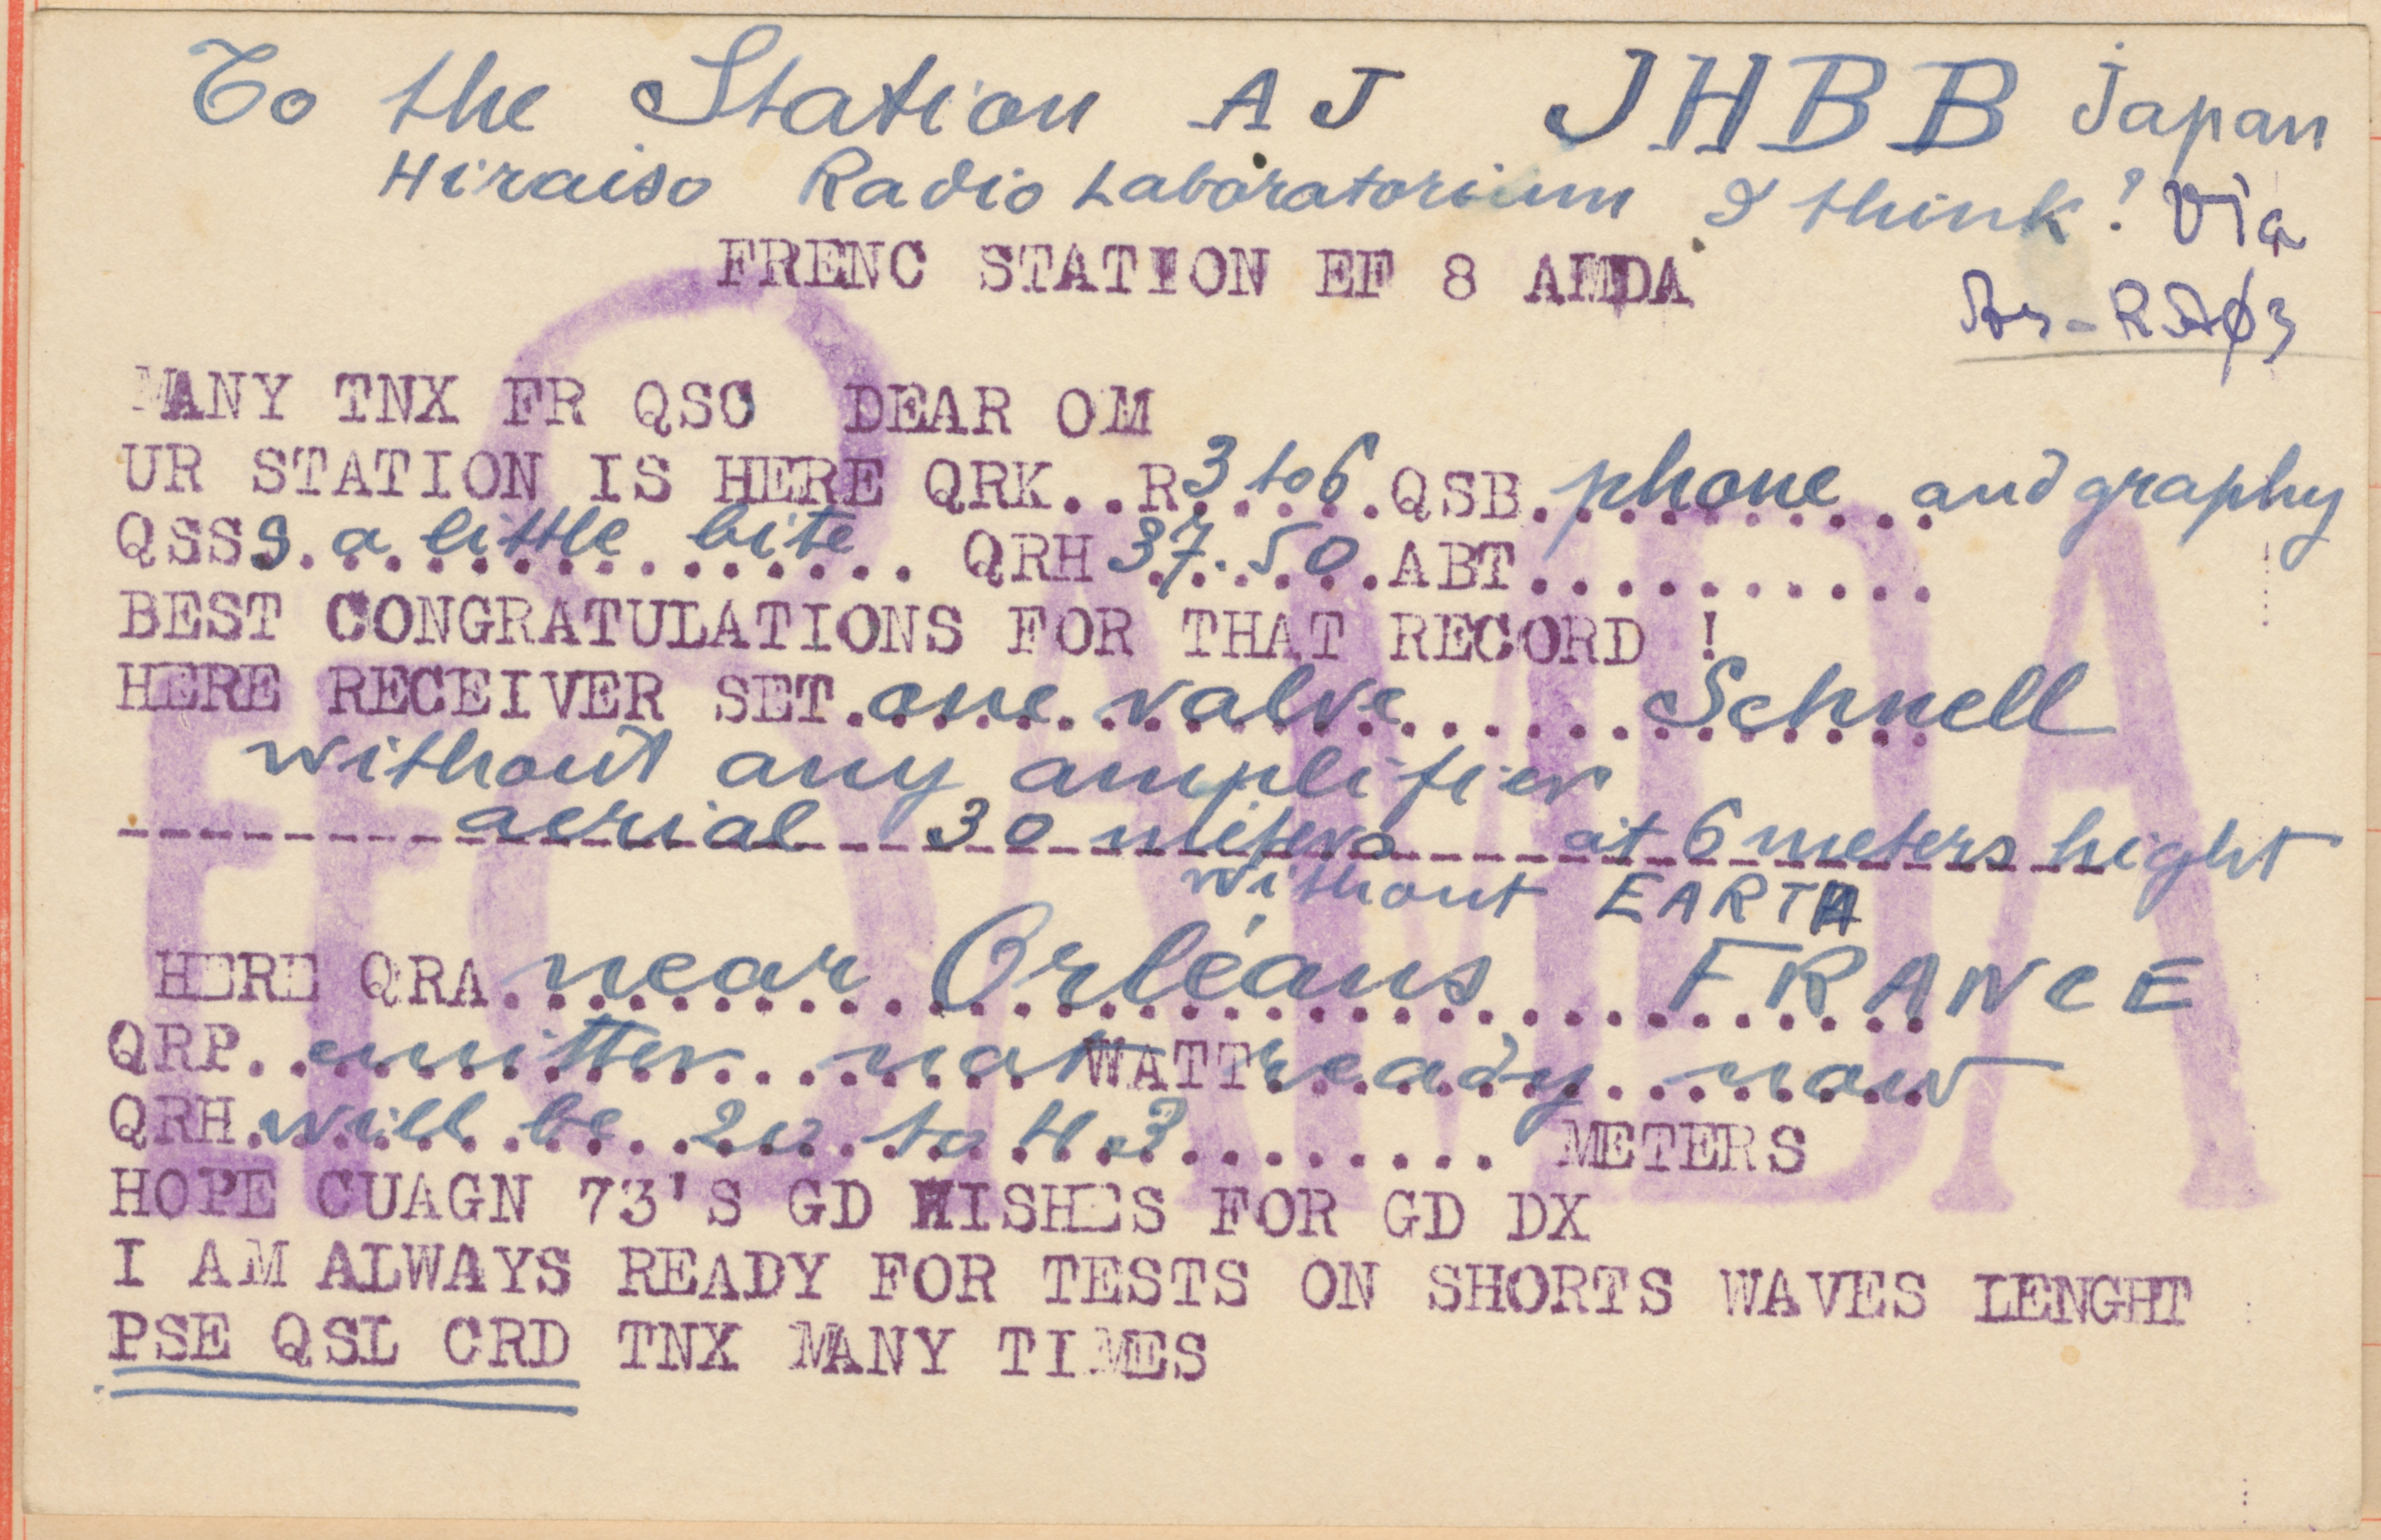 To the Station AJ JHBB Japan
Hiraiso Radio Laboratorium I think! Via
FRENC STATION EF 8 AMDA
As-RA03
MANY TNX FR QSO DEAR OM
UR STATION IS HERE QRK..R 3 to 6 QSB. phone and graphy
QSSS. a little bite QRH 37.50 ABT..........
BEST CONGRATULATIONS FOR THAT RECORD !
HERE RECEIVER SET. one valve Schnell
without any amplifier
aerial 30 meters at 6 meters hight
without EARTH
HERE QRA near Orléans FRANCE
QRP.. emitter not WATT ready now
QRH. will be 20 to 43 METERS
HOPE CUAGN 73'S GD WISHES FOR GD DX
I AM ALWAYS READY FOR TESTS ON SHORTS WAVES LENGHT
PSE QSL CRD TNX MANY TIMES
8
EF 8 AMDA